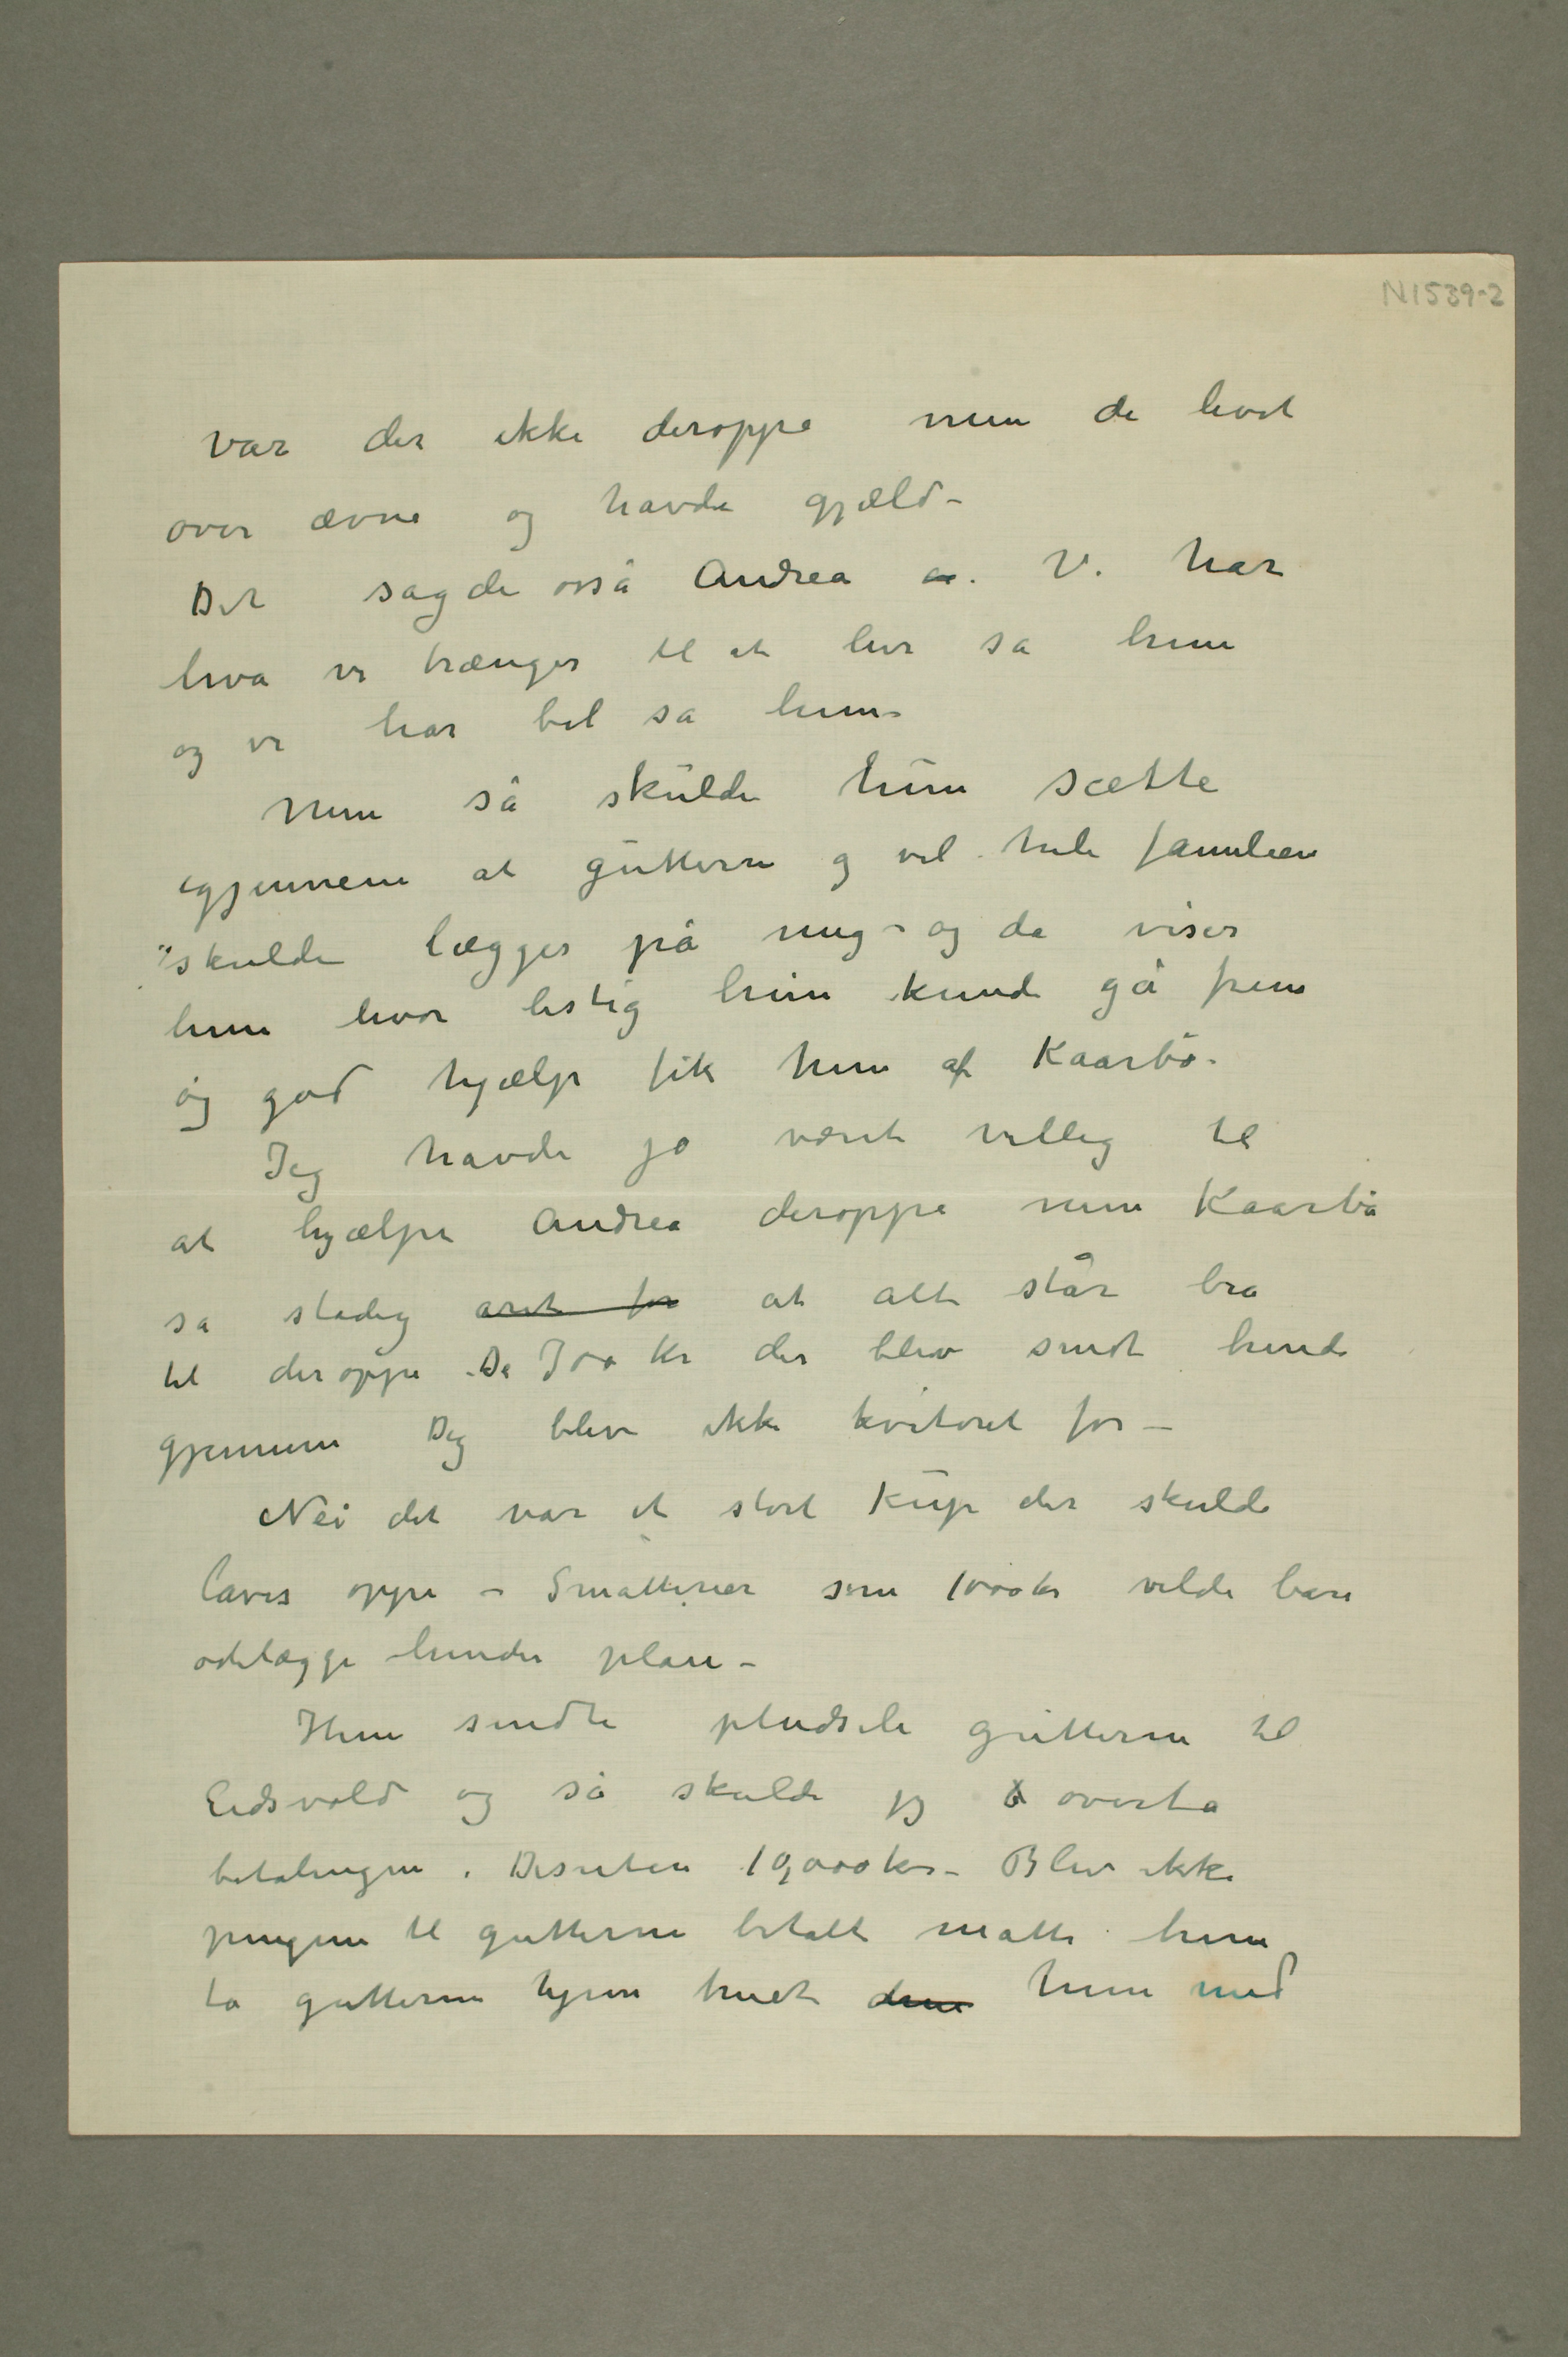 N1539-2
var der ikke deroppe men de levet
over ævne og havde gjæld –
Det sagde osså Andrea. Vi har
hva vi trænger til at leve sa hun
og vi har bil sa hun –
Men så skulde hun sætte
igjennem at gutterne og vel hele familien
skulde lægges på mig – og da viser
hun hvor listig hun kunde gå frem
og god hjælp fik hun af Kaarbø.
Jeg havde jo været villig til
at hjælpe Andrea deroppe men Kaarbø
sa stadig året før at alt står bra
til deroppe. De 300 Kr der blev sendt hende
gjennem Dig blev ikke kvitteret for –
Nei det var et stort Kup der skulde
laves oppe – Småtterier som 1000 kr vilde bare
ødelægge hendes plan –
Hun sendte pludseli gutterne til
Eidsvold og så skulde jeg overta
betalingen. Desuten 10,000 kr – Blev ikke
pengene til gutterne betalt måtte hun
ta gutterne hjem truet hun med